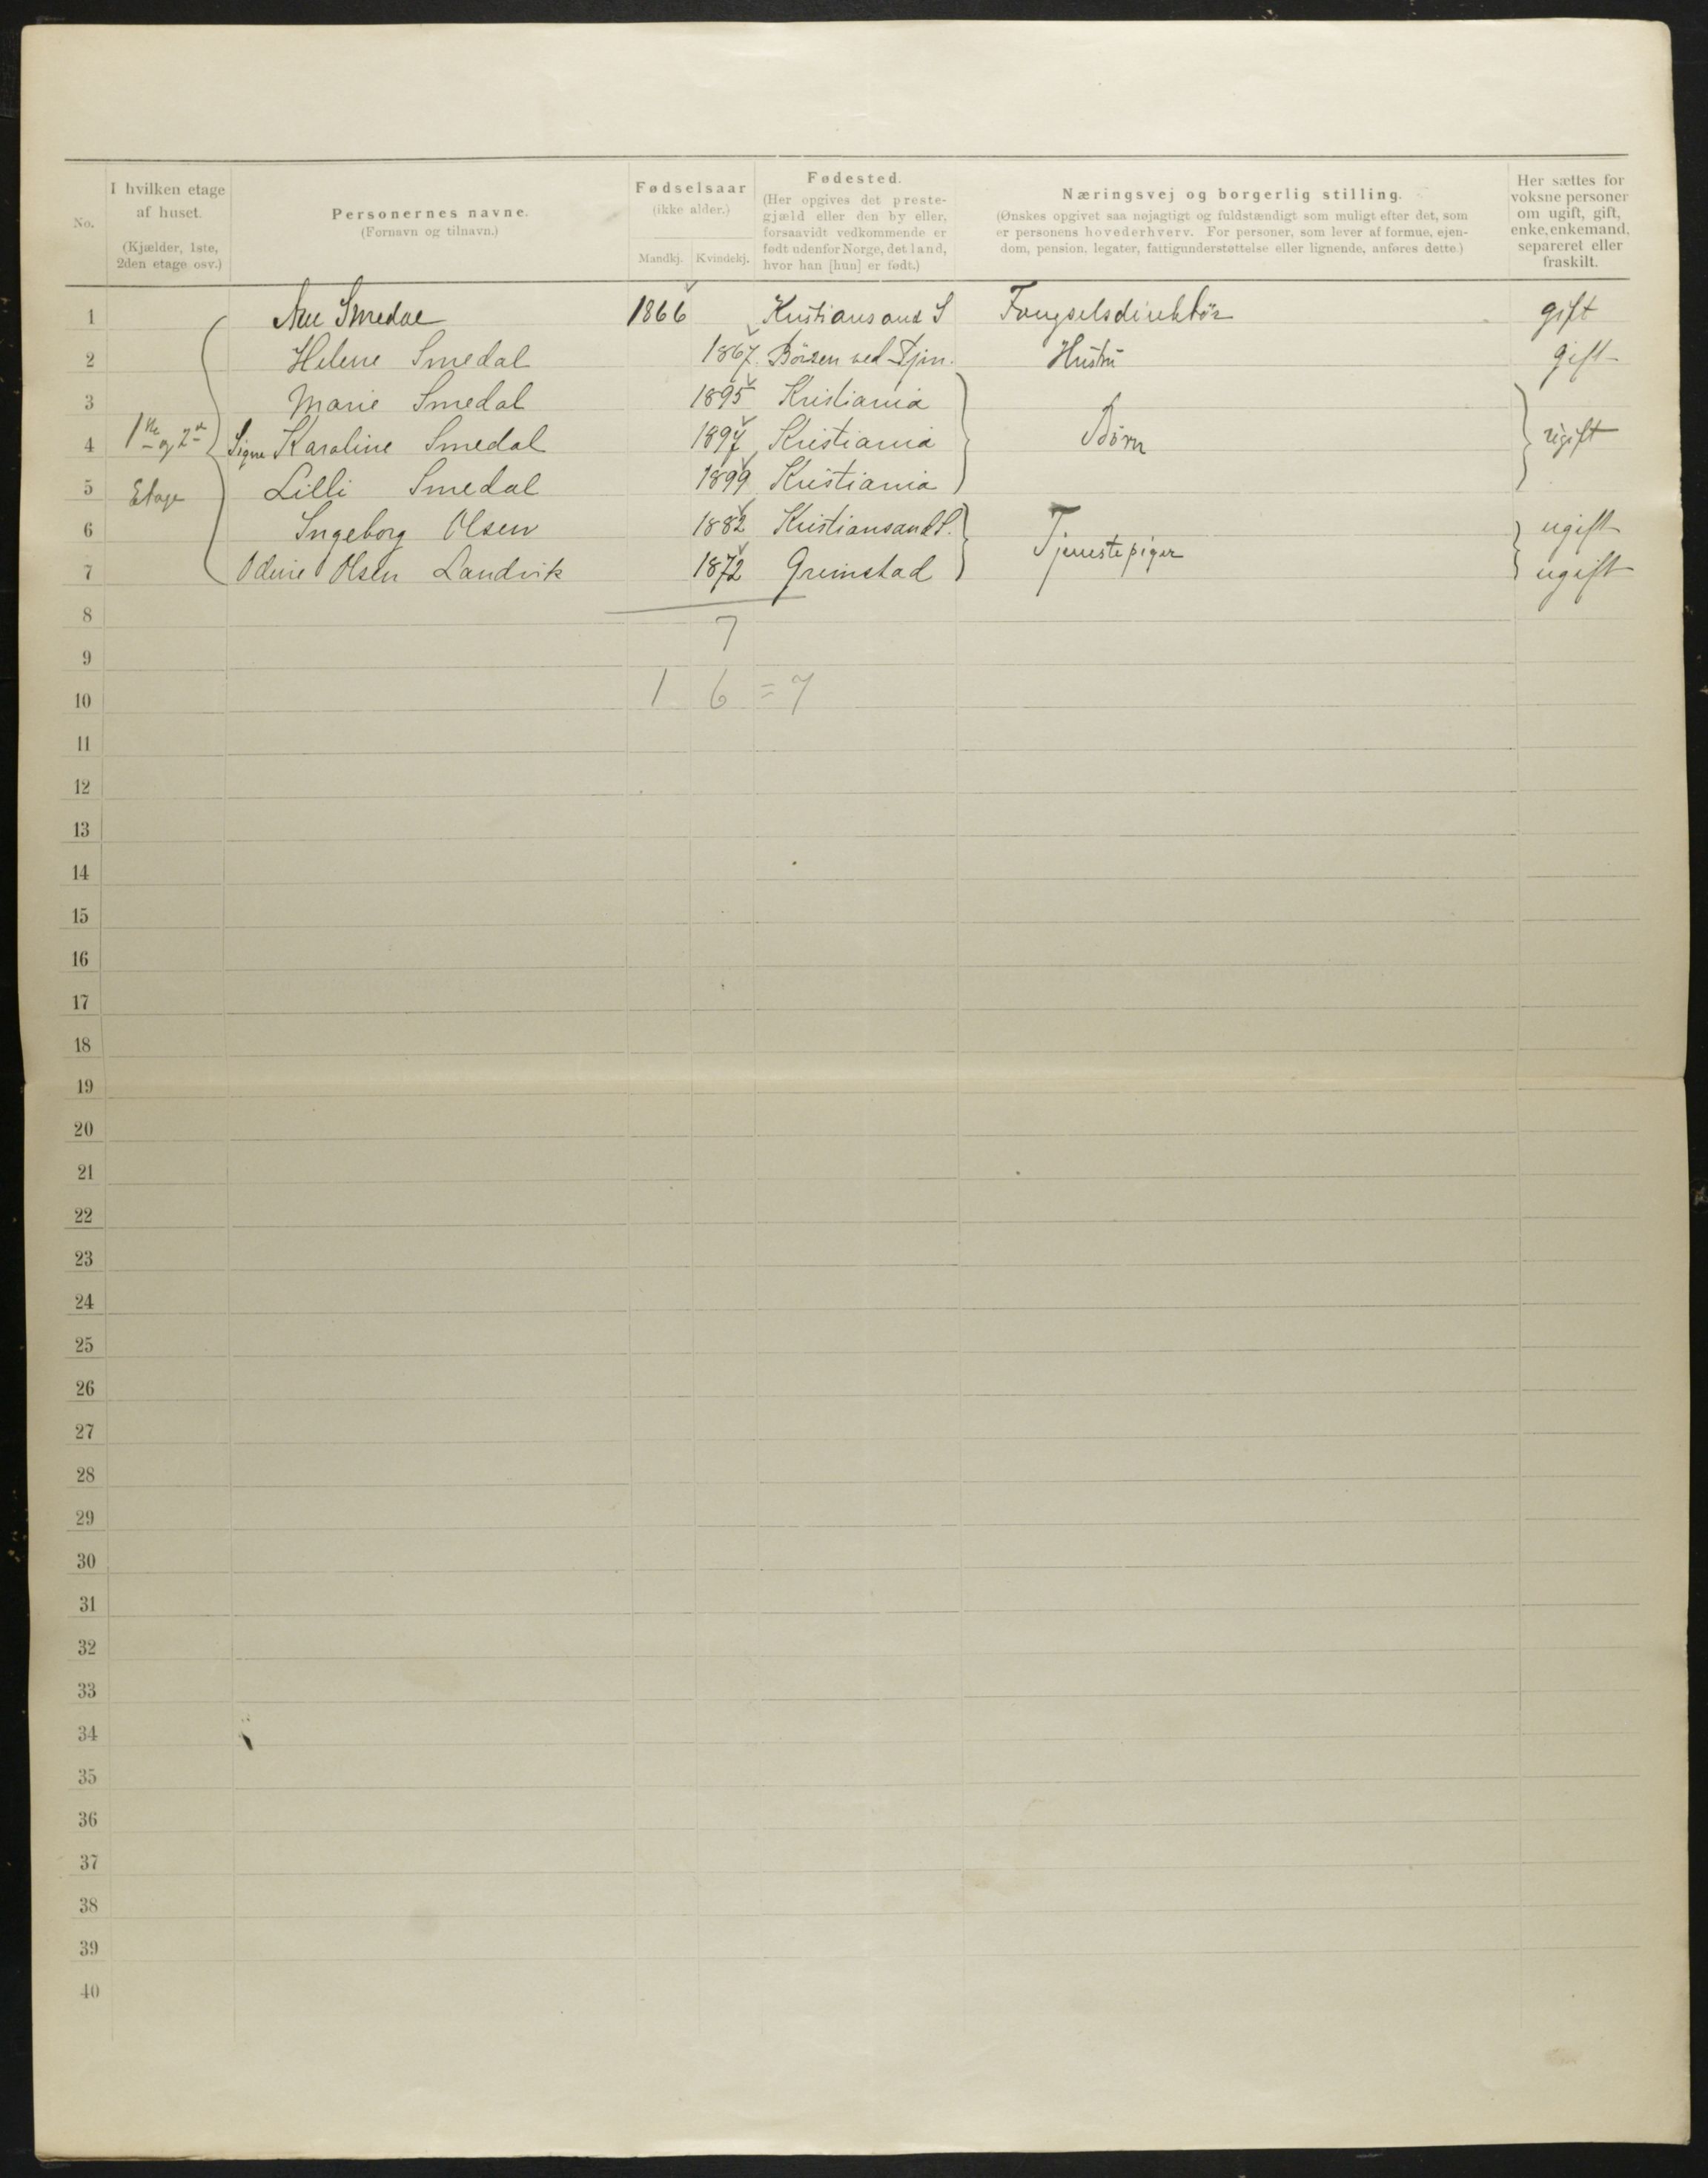 No.
I hvilken etage af huset.
(Kjælder, 1ste, 2den etage osv.)
Personernes navne.
(Fornavn og tilnavn.)
Fødselsaar
(ikke alder.)
Mandkj. Kvindekj.
Fødested.
(Her opgives det preste-
gjæld eller den by eller,
forsaavidt vedkommende er
født udenfor Norge, det land,
hvor han [hun] er født.)
Næringsvej og borgerlig stilling.
(Ønskes opgivet saa nøjagtigt og fuldstændigt som muligt efter det, som
er personens hovederhverv. For personer, som lever af formue, ejen-
dom, pension, legater, fattigunderstøttelse eller lignende, anføres dette.)
Her sættes for
voksne personer
om ugift, gift,
enke, enkemand,
separeret eller
fraskilt.
1 Smedal 1866 Kristiansand S Fængselsdirektør gift
2 Helene Smedal 1867. Börsen ved Tjm. Hustru gift
3 Marie Smedal 1895 Kristiania
4 1ste og 2den Signe Karoline Smedal 1897 Kristiania Börn ugift
5 Etage Lilli Smedal 1899 Kristiania
6 Ingeborg Olsen 1882 Kristiansand S. ugift
7 Odine Olsen Landvik 1872 Grimstad Tjenestepiger ugift
8 7
9
10 1 6 = 7
11
12
13
14
15
16
17
18
19
20
21
22
23
24
25
26
27
28
29
30
31
32
33
34
35
36
37
38
39
40